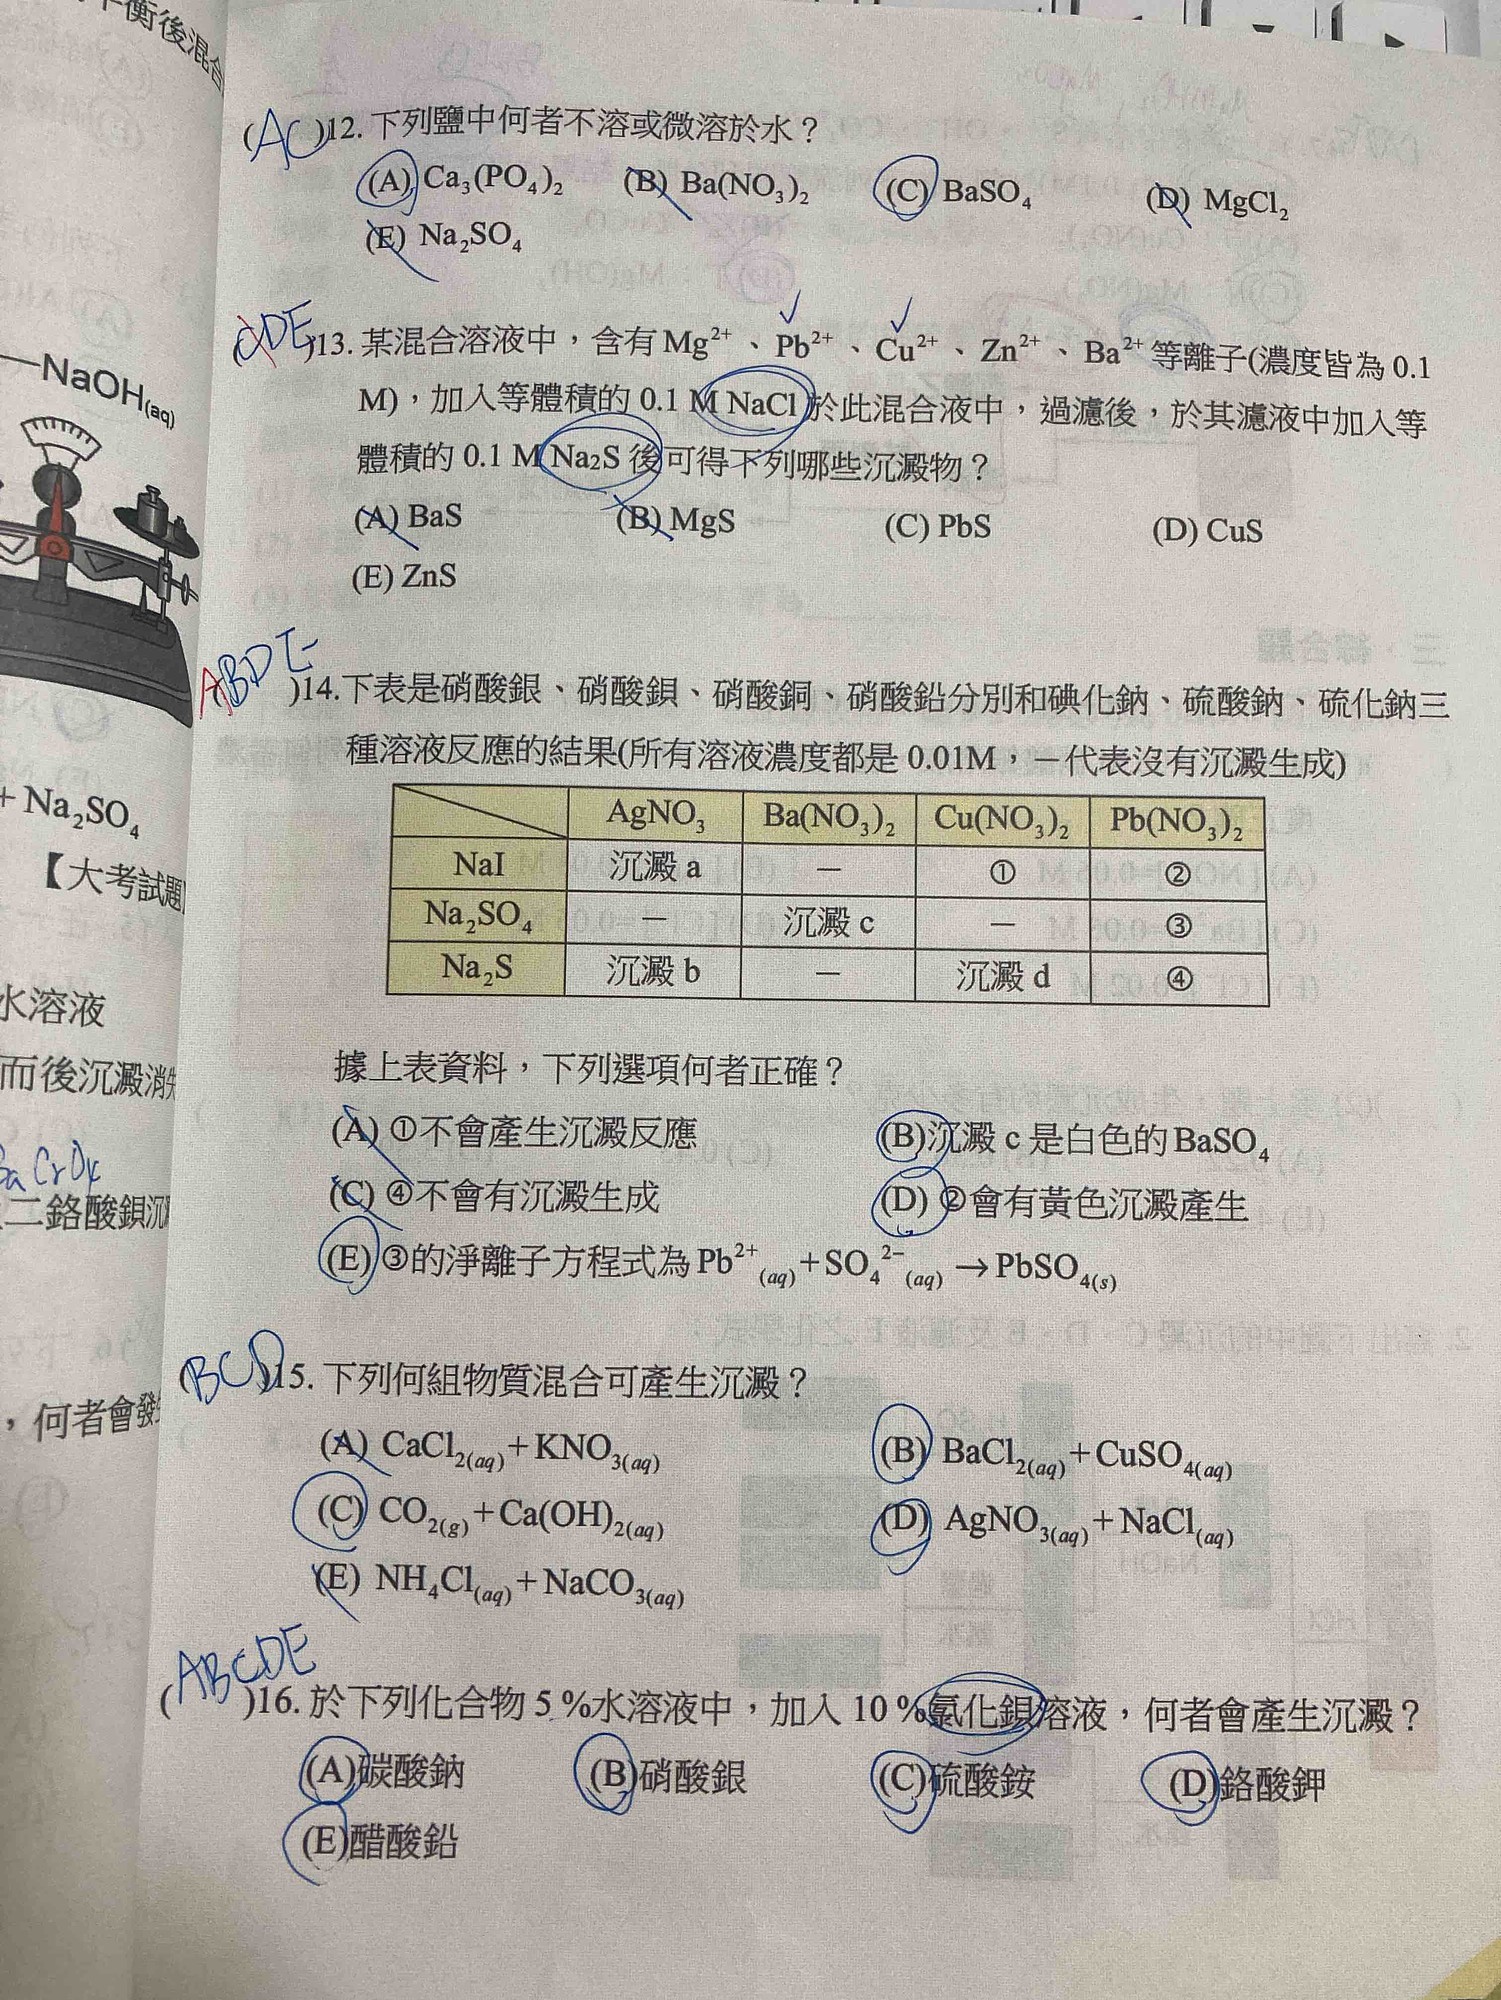 衡後混合
NaOH(aq)
+ Na₂SO₄
【大考試題
水溶液
而後沉澱消失
BaCrO₄
二鉻酸鋇沉
，何者會發
(AC)12. 下列鹽中何者不溶或微溶於水？
(A) Ca₃(PO₄)₂ (B) Ba(NO₃)₂ (C) BaSO₄ (D) MgCl₂
(E) Na₂SO₄
(CDE)13. 某混合溶液中，含有 Mg²⁺、Pb²⁺、Cu²⁺、Zn²⁺、Ba²⁺ 等離子(濃度皆為 0.1
M)，加入等體積的 0.1 M NaCl 於此混合液中，過濾後，於其濾液中加入等
體積的 0.1 M Na₂S 後可得下列哪些沉澱物？
(A) BaS (B) MgS (C) PbS (D) CuS
(E) ZnS
(ABDE)14.下表是硝酸銀、硝酸鋇、硝酸銅、硝酸鉛分別和碘化鈉、硫酸鈉、硫化鈉三
種溶液反應的結果(所有溶液濃度都是 0.01M，－代表沒有沉澱生成)
AgNO₃ Ba(NO₃)₂ Cu(NO₃)₂ Pb(NO₃)₂
NaI 沉澱 a － ① ②
Na₂SO₄ － 沉澱 c － ③
Na₂S 沉澱 b － 沉澱 d ④
據上表資料，下列選項何者正確？
(A) ①不會產生沉澱反應 (B)沉澱 c 是白色的 BaSO₄
(C) ④不會有沉澱生成 (D) ②會有黃色沉澱產生
(E) ③的淨離子方程式為 Pb²⁺(aq)+SO₄²⁻(aq) → PbSO₄(s)
(BCD)15. 下列何組物質混合可產生沉澱？
(A) CaCl₂(aq)+KNO₃(aq) (B) BaCl₂(aq)+CuSO₄(aq)
(C) CO₂(g)+Ca(OH)₂(aq) (D) AgNO₃(aq)+NaCl(aq)
(E) NH₄Cl(aq)+NaCO₃(aq)
(ABCDE)16. 於下列化合物 5 %水溶液中，加入 10 %氯化鋇溶液，何者會產生沉澱？
(A)碳酸鈉 (B)硝酸銀 (C)硫酸銨 (D)鉻酸鉀
(E)醋酸鉛